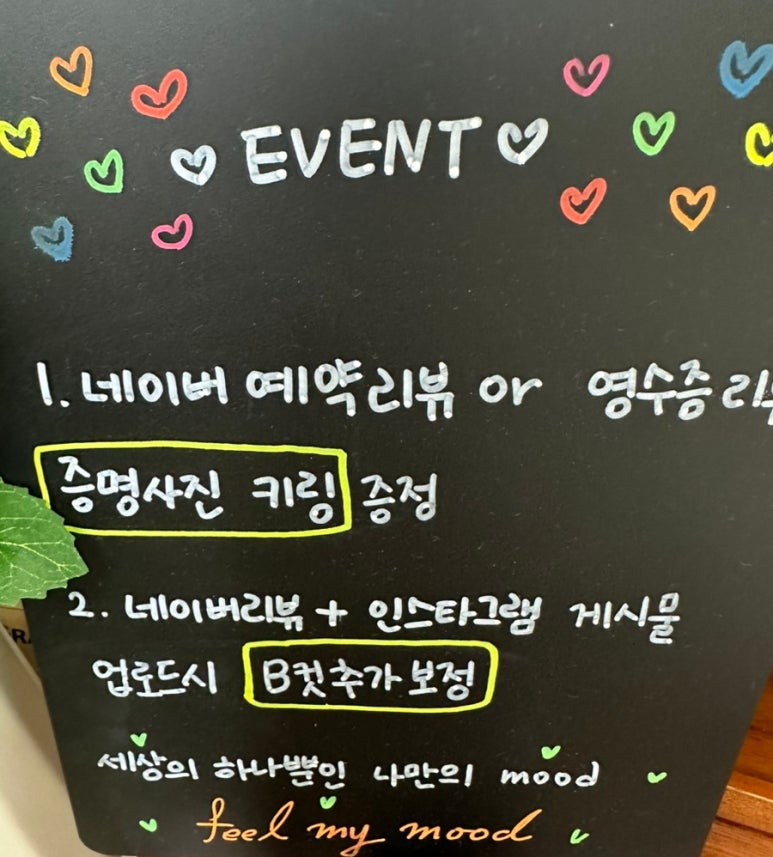 EVENT
1. 네이버 예약리뷰 or 영수증
증명사진 키링 증정
2. 네이버리뷰 + 인스타그램 게시물
업로드시 B컷추가보정
세상의 하나뿐인 나만의 mood
feel my mood